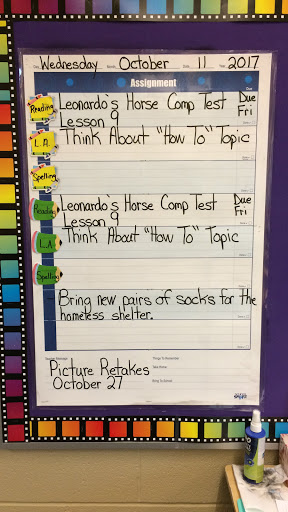 Wednesday Month October Date 11 Year 2017
Assignment
Due
Reading Leonardo's Horse Comp Test Due
Lesson 9 Fri
L.A. Think About "How To" Topic
Spelling
Reading Leonardo's Horse Comp Test Due
Lesson 9 Fri
L.A. Think About "How To" Topic
Spelling
Bring new pairs of socks for the
homeless shelter.
Things To Remember
Picture Retakes
October 27
Bring To School